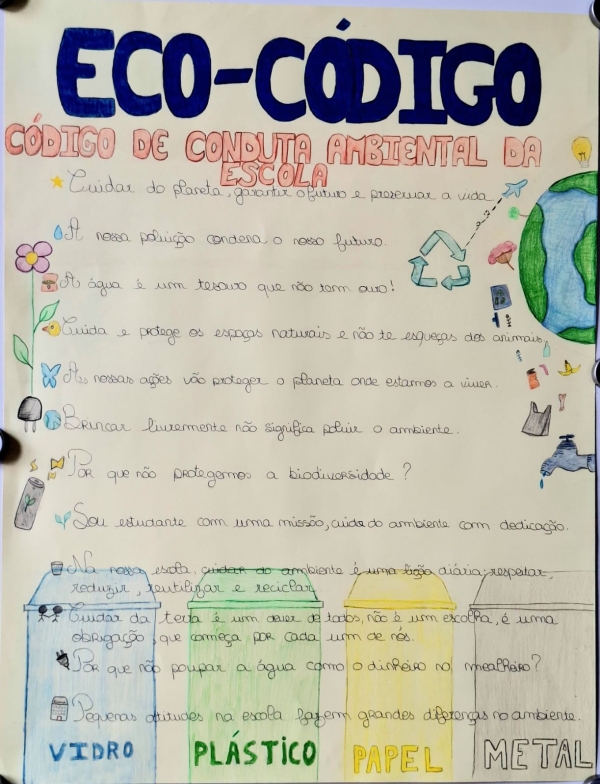 ECO-CÓDIGO
CÓDIGO DE CONDUTA AMBIENTAL DA
ESCOLA
Cuidar do planeta, garantir o futuro e preservar a vida
A nossa poluição condena o nosso futuro.
A água é um tesouro que não tem ouro!
Cuida e protege os espaços naturais e não te esqueças dos animais,
As nossas ações vão proteger o planeta onde estamos a viver.
Brincar livremente não significa poluir o ambiente.
Por que não protegemos a biodiversidade?
Sou estudante com uma missão, cuido do ambiente com dedicação.
Na nossa escola, cuidar do ambiente é uma lição diária: respeitar,
reduzir, reutilizar e reciclar
Cuidar da terra é um dever de todos, não é um escolha, é uma
obrigação, que começa por cada um de nós.
Por que não poupar a água como o dinheiro no mealheiro?
Pequenas atitudes na escola fazem grandes diferenças no ambiente.
VIDRO
PLÁSTICO
PAPEL
METAL